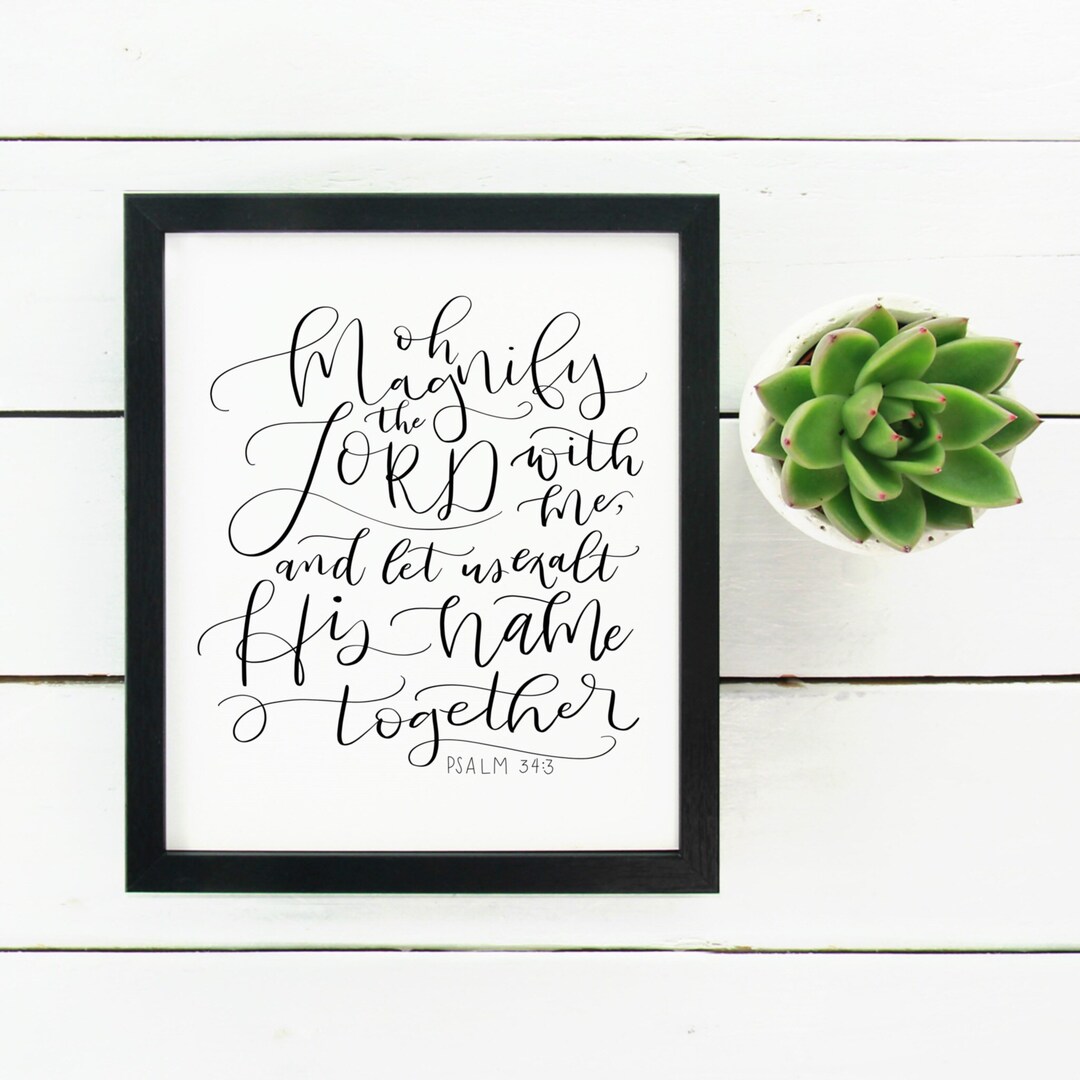 oh
Magnify
the
LORD with
me,
and let us exalt
His name
together
PSALM 34:3